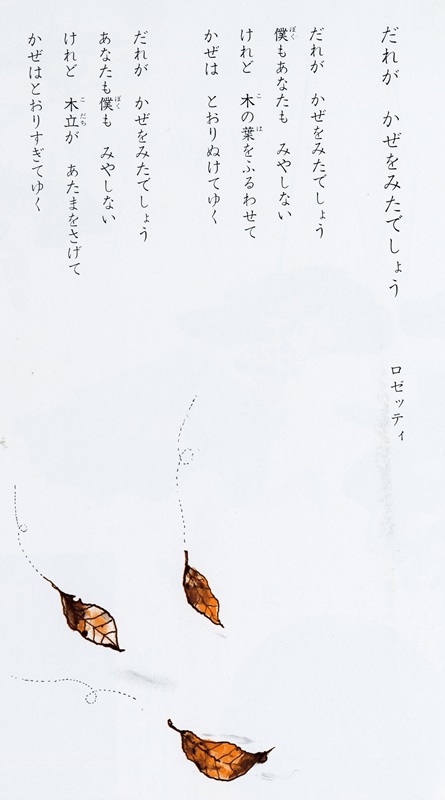 だれが　かぜをみたでしょう
ロゼッティ
だれが　かぜをみたでしょう
僕もあなたも　みやしない
けれど　木の葉をふるわせて
かぜは　とおりぬけてゆく
だれが　かぜをみたでしょう
あなたも僕も　みやしない
けれど　木立が　あたまをさげて
かぜはとおりすぎてゆく